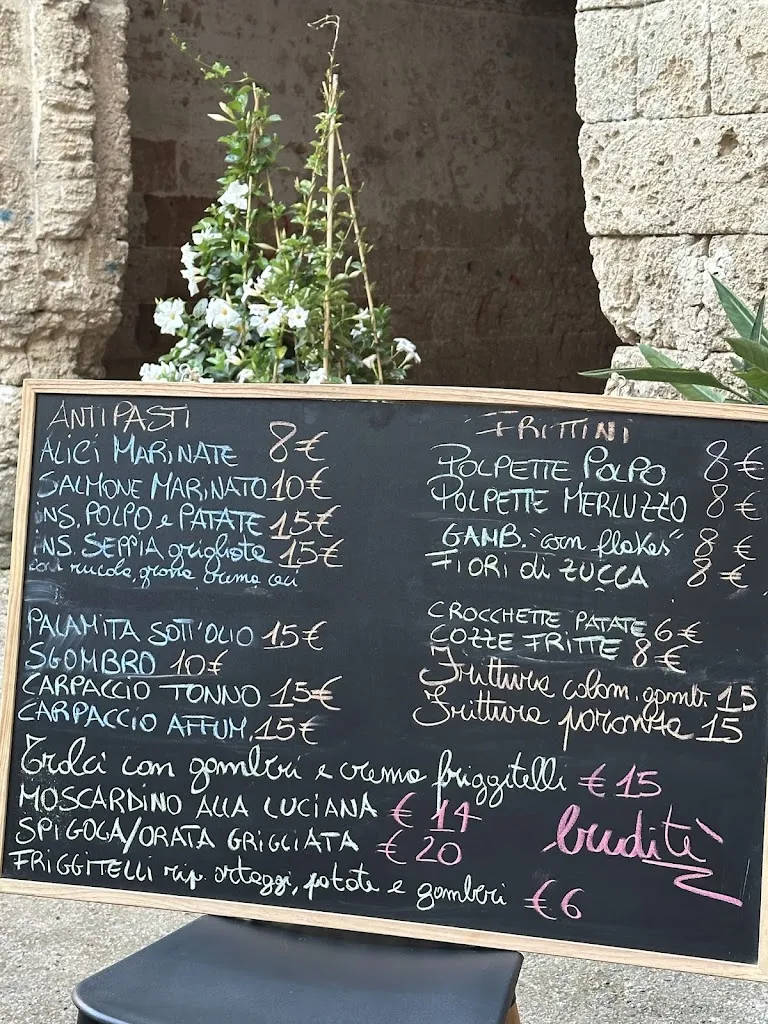 ANTIPASTI
ALICI MARINATE 8€
SALMONE MARINATO 10€
INS. POLPO e PATATE 15€
INS. SEPPIA grigliata 15€
con rucola, grana crema ceci
PALAMITA SOTT'OLIO 15€
SGOMBRO 10€
CARPACCIO TONNO 15€
CARPACCIO AFFUM. 15€
FRITTINI
POLPETTE POLPO 8€
POLPETTE MERLUZZO 8€
GAMB. "corn flakes" 8€
FIORI di ZUCCA 8€
CROCCHETTE PATATE 6€
COZZE FRITTE 8€
Frittura calam. gamb. 15
Frittura paranza 15
con gamberi e crema friggitelli €15
MOSCARDINO ALLA LUCIANA € 14
SPIGOLA/ORATA GRIGLIATA € 20
FRIGGITELLI rip. ortaggi, patate e gamberi €6
crudité